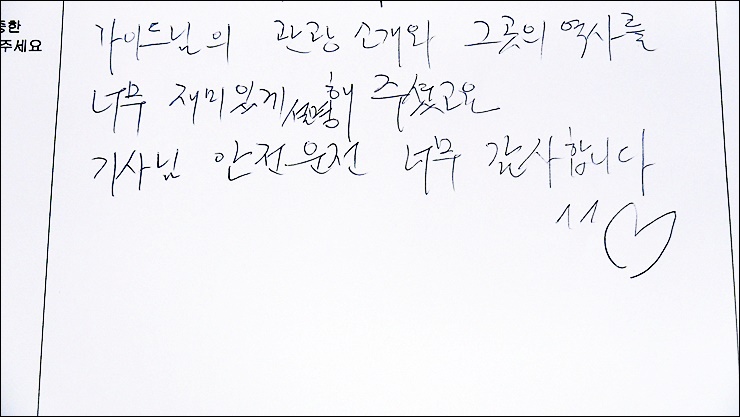 중한
주세요
가이드님의 관광 소개와 그곳의 역사를
너무 재미있게 설명해 주셨고요
기사님 안전운전 너무 감사합니다
^^♡